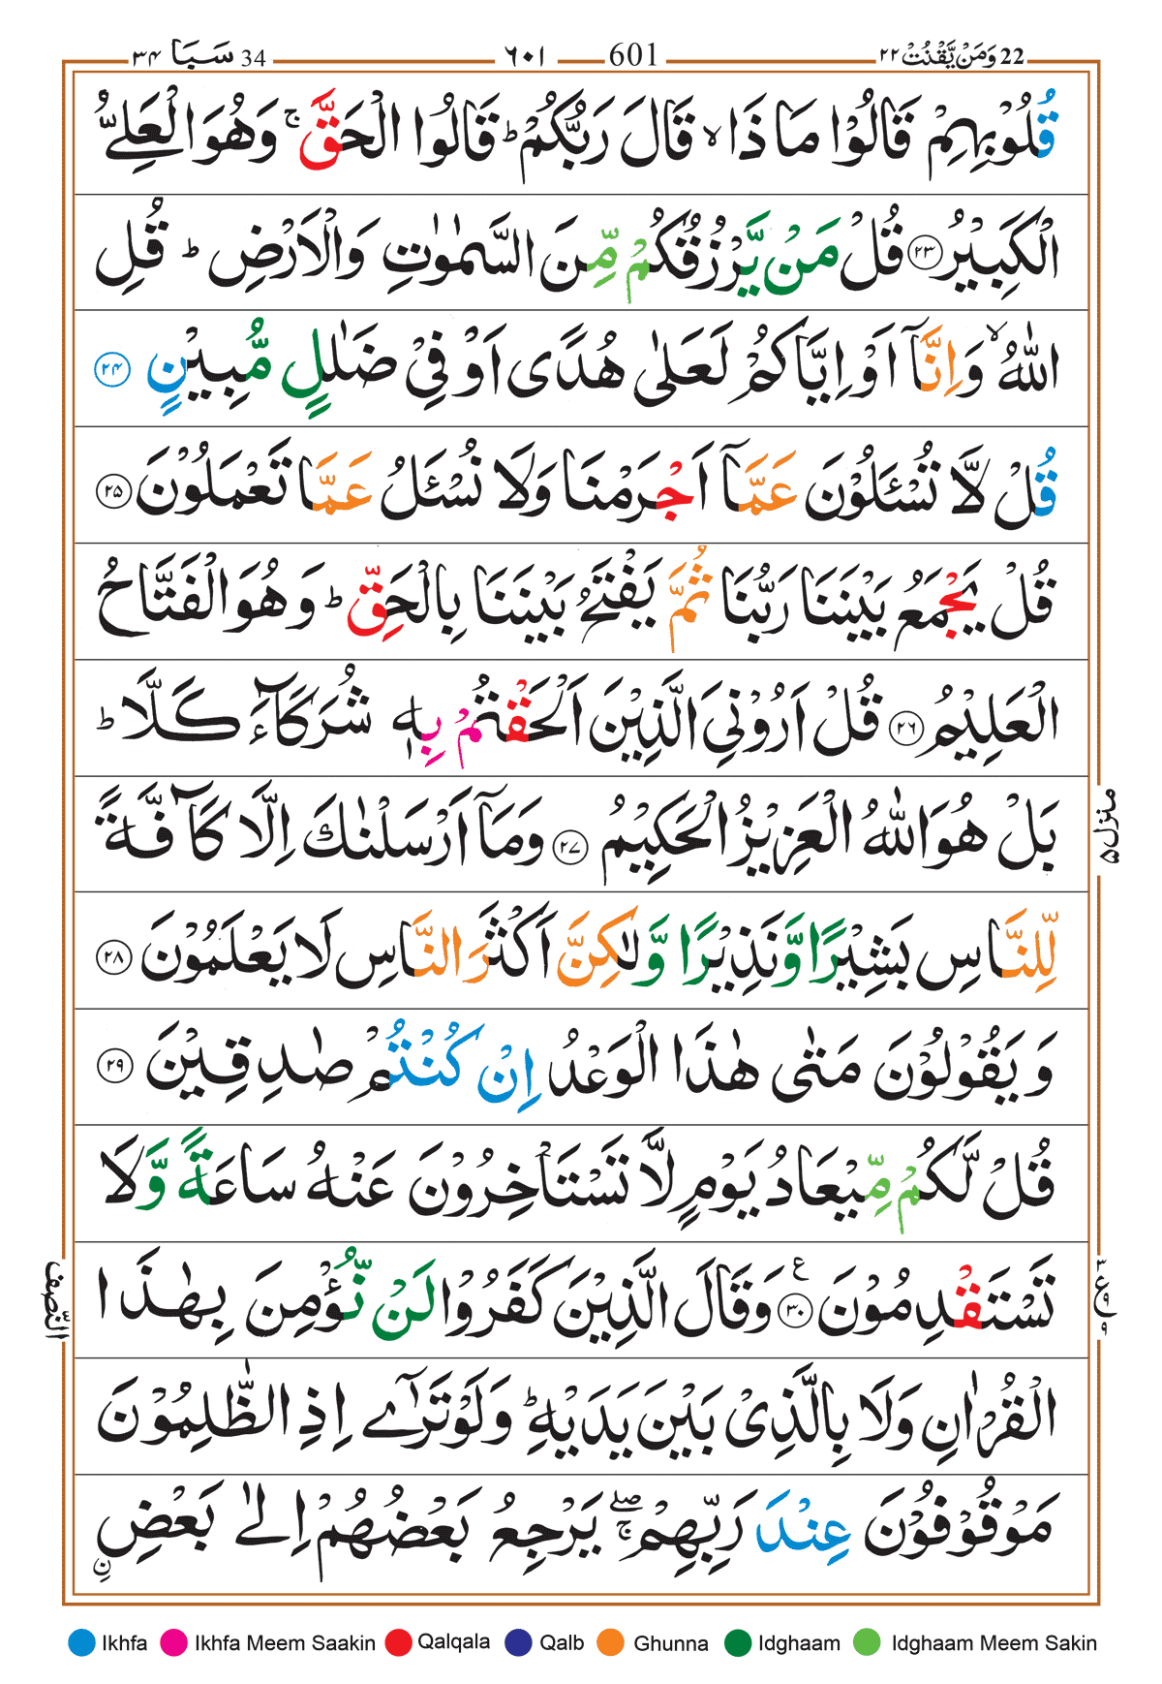 22 وَمَنْ يَّقْنُتْ ٢٢ 601 ٦٠١ 34 سَبَا ٣٤
قُلُوْبِهِمْ قَالُوْا مَاذَا ۙ قَالَ رَبُّكُمْ ؕ قَالُوا الْحَقَّ ۚ وَهُوَ الْعَلِیُّ
الْكَبِیْرُ ﴿٢٣﴾ قُلْ مَنْ یَّرْزُقُكُمْ مِّنَ السَّمٰوٰتِ وَالْاَرْضِ ؕ قُلِ
اللّٰهُ ۙ وَاِنَّاۤ اَوْ اِیَّاكُمْ لَعَلٰی هُدًی اَوْ فِیْ ضَلٰلٍ مُّبِیْنٍ ﴿٢٤﴾
قُلْ لَّا تُسْـَٔلُوْنَ عَمَّاۤ اَجْرَمْنَا وَلَا نُسْـَٔلُ عَمَّا تَعْمَلُوْنَ ﴿٢٥﴾
قُلْ یَجْمَعُ بَیْنَنَا رَبُّنَا ثُمَّ یَفْتَحُ بَیْنَنَا بِالْحَقِّ ؕ وَهُوَ الْفَتَّاحُ
الْعَلِیْمُ ﴿٢٦﴾ قُلْ اَرُوْنِیَ الَّذِیْنَ اَلْحَقْتُمْ بِهٖ شُرَكَآءَ كَلَّا ؕ
بَلْ هُوَ اللّٰهُ الْعَزِیْزُ الْحَكِیْمُ ﴿٢٧﴾ وَمَاۤ اَرْسَلْنٰكَ اِلَّا كَآفَّةً
لِّلنَّاسِ بَشِیْرًا وَّنَذِیْرًا وَّلٰكِنَّ اَكْثَرَ النَّاسِ لَا یَعْلَمُوْنَ ﴿٢٨﴾
وَیَقُوْلُوْنَ مَتٰی هٰذَا الْوَعْدُ اِنْ كُنْتُمْ صٰدِقِیْنَ ﴿٢٩﴾
قُلْ لَّكُمْ مِّیْعَادُ یَوْمٍ لَّا تَسْتَاْخِرُوْنَ عَنْهُ سَاعَةً وَّلَا
تَسْتَقْدِمُوْنَ ﴿٣٠﴾ ع وَقَالَ الَّذِیْنَ كَفَرُوْا لَنْ نُّؤْمِنَ بِهٰذَا
الْقُرْاٰنِ وَلَا بِالَّذِیْ بَیْنَ یَدَیْهِ ؕ وَلَوْ تَرٰۤی اِذِ الظّٰلِمُوْنَ
مَوْقُوْفُوْنَ عِنْدَ رَبِّهِمْ ۖۚ یَرْجِعُ بَعْضُهُمْ اِلٰی بَعْضِ
منزل ۵
النّصف
Ikhfa Ikhfa Meem Saakin Qalqala Qalb Ghunna Idghaam Idghaam Meem Sakin